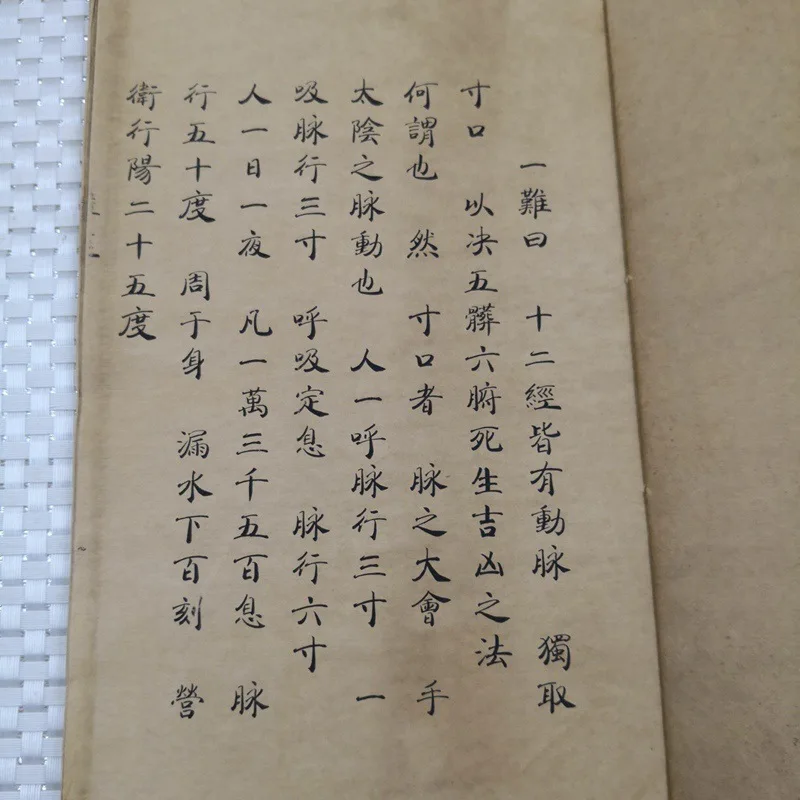 一難曰 十二經皆有動脉 獨取
寸口 以决五臟六腑死生吉凶之法
何謂也 然 寸口者 脉之大會 手
太陰之脉動也 人一呼脉行三寸 一
吸脉行三寸 呼吸定息 脉行六寸
人一日一夜 凡一萬三千五百息 脉
行五十度 周于身 漏水下百刻 營
衛行陽二十五度